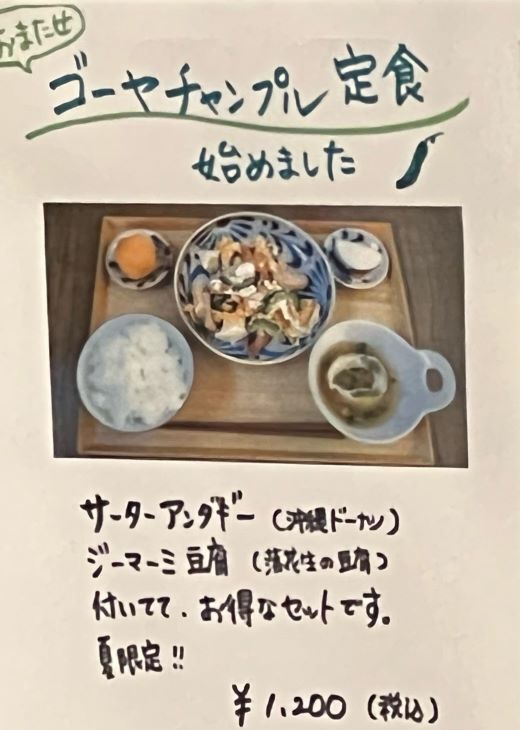 おまたせ
ゴーヤチャンプル定食
始めました
サーターアンダギー (沖縄ドーナツ)
ジーマーミ豆腐 (落花生の豆腐)
付いてて、お得なセットです。
夏限定!!
¥1,200 (税込)